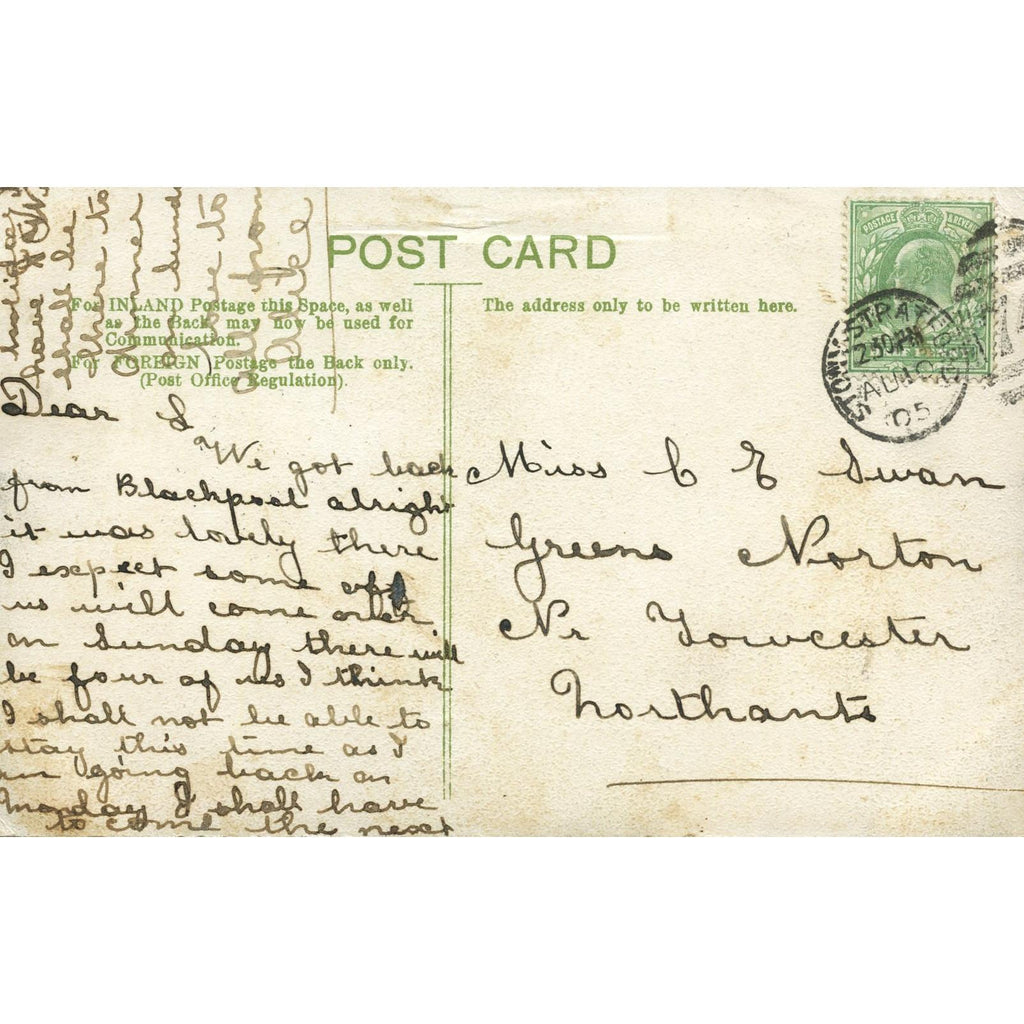 POST CARD
For INLAND Postage this Space, as well
as the Back, may now be used for
Communication.
For FOREIGN Postage the Back only.
(Post Office Regulation).
The address only to be written here.
POSTAGE & REVENUE
STONY STRATFORD
2.30PM
AU 10
05
Dear S
We got back
from Blackpool alright
it was lovely there
I expect some of
us will come over
on Sunday there will
be four of us I think
I shall not be able to
stay this time as I
am going back on
Monday I shall have
to come the next
holiday
have
shall be
there to
love to
all from
Miss C E Swan
Greens Norton
Nr Towcester
Northants